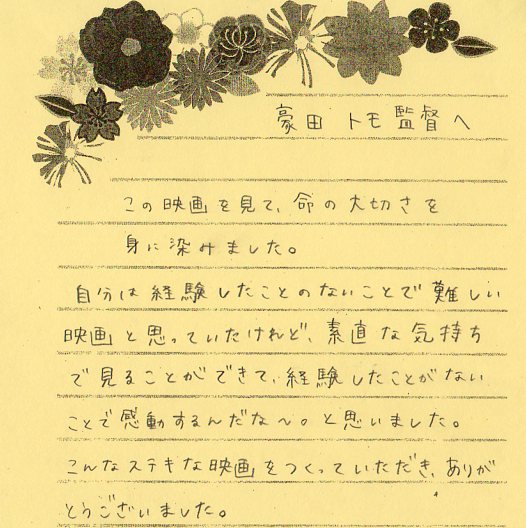 豪田トモ監督へ
この映画を見て、命の大切さを
身に染みました。
自分は経験したことのないことで難しい
映画と思っていたけれど、素直な気持ち
で見ることができて、経験したことがない
ことで感動するんだな〜。と思いました。
こんなステキな映画をつくっていただき、ありが
とうございました。